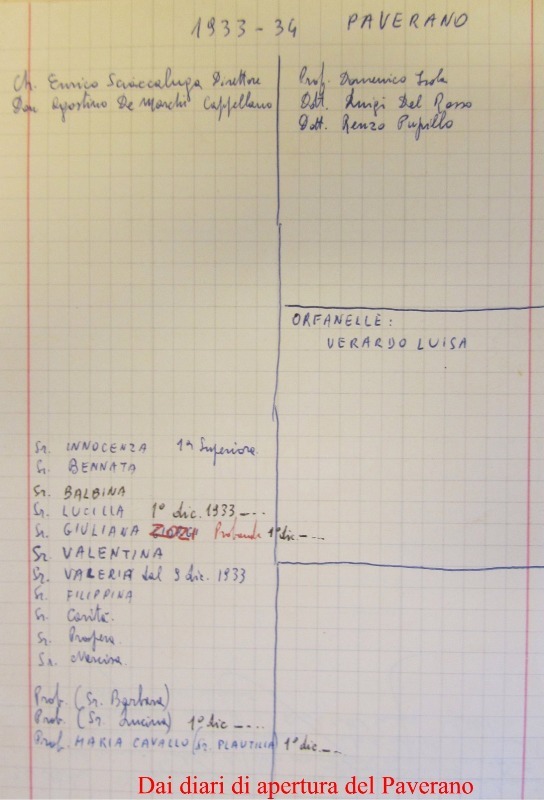 1933-34 PAVERANO
Ch. Enrico Sciaccaluga Direttore
Don Agostino De Marchi Cappellano
Prof. Domenico Isola
Dott. Luigi Del Rosso
Dott. Renzo Pupillo
ORFANELLE:
VERARDO LUISA
Sr. INNOCENZA 1ª Superiora
Sr. BENNATA
Sr. BALBINA
Sr. LUCILLA 1° dic. 1933 ----
Sr. GIULIANA Probanda 1° dic ----
Sr. VALENTINA
Sr. VALERIA dal 9 dic. 1933
Sr. FILIPPINA
Sr. Carità
Sr. Prospera
Sr. Narcisa
Prob. (Sr. Barbara)
Prob. (Sr. Lucina) 1° dic ----
Prob. MARIA CAVALLO (Sr. PLAUTILIA) 1° dic ----
Dai diari di apertura del Paverano